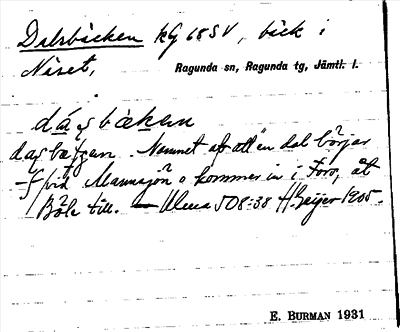 Dalsbäcken kG 68 SV, bäck i
Näset,
Ragunda sn, Ragunda tg, Jämtl. l.
Namnet af att en dal börjar
vid Mansjön o kommer in i Fors, åt
Böle till. — Ulma 508:38 H. Geijer 1905.
E. BURMAN 1931